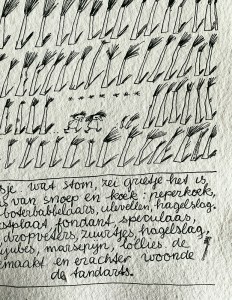 sje wat stom, zei grietje het is
is van snoep en koek: peperkoek,
boterbabbelaars, ulevellen, hagelslag.
stplaat, fondant, speculaas,
dropveters, zuurtjes, hagelslag,
jubes, marsepijn, lollies. de
emaakt en erachter woonde
de tandarts.